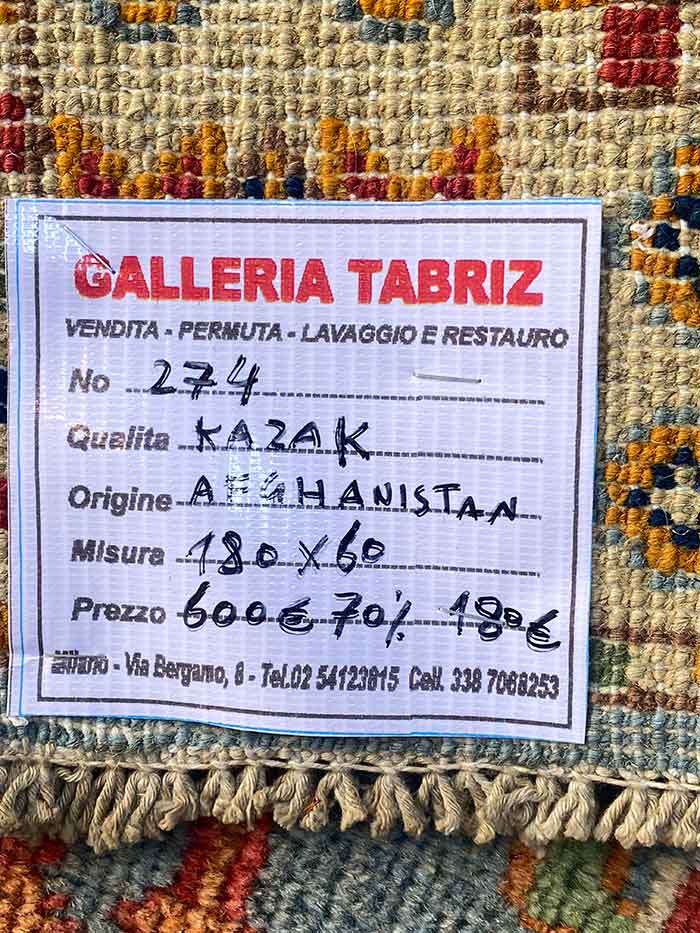 GALLERIA TABRIZ
VENDITA - PERMUTA - LAVAGGIO E RESTAURO
No 274
Qualita KAZAK
Origine AFGHANISTAN
Misura 180 x 60
Prezzo 600€ 70% 180€
- Via Bergamo, 8 - Tel.02 54123815 Cell. 338 7068253